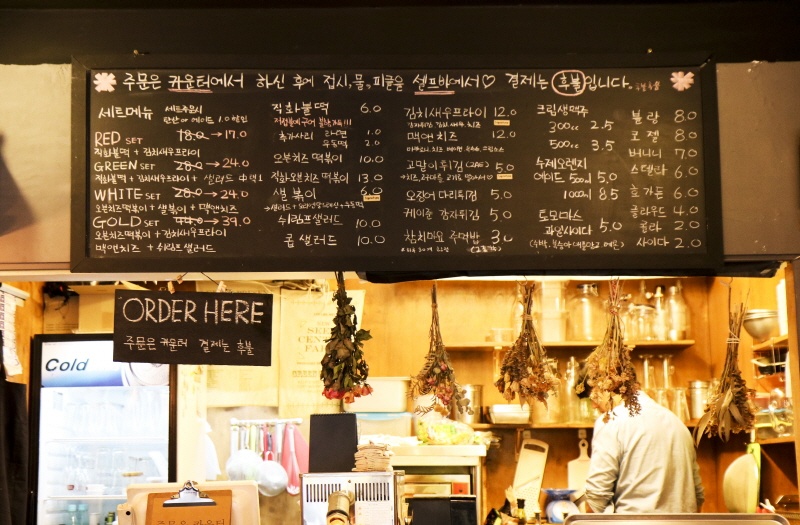 주문은 카운터에서 하신 후에 접시,물,피클은 셀프바에서♡ 결제는 후불입니다.
세트메뉴 세트주문시
탄산 or 에이드 1.0 할인
RED SET 18.0 → 17.0
직화불떡 + 김치새우프라이
GREEN SET 28.0 → 24.0
직화불떡 + 김치새우프라이 + 샐러드 中택1
WHITE SET 28.0 → 24.0
오븐치즈떡볶이 + 샐볶이 + 맥앤치즈
GOLD SET → 39.0
오븐치즈떡볶이 + 김치새우프라이
맥앤치즈 + 쉬림프샐러드
직화불떡 6.0
추가사리 라면 1.0
우동 2.0
오븐치즈 떡볶이 10.0
직화오븐치즈 떡볶이 13.0
샐 볶이 6.0
쉬림프샐러드 10.0
콥 샐러드 10.0
김치새우프라이 12.0
감자튀김, 김치, 새우, 치즈
맥앤치즈 12.0
고말이튀김 (2PCS) 5.0
오징어 다리튀김 5.0
케이준 감자튀김 5.0
참치마요 주먹밥 3.0
크림생맥주
300cc 2.5
500cc 3.5
수제오렌지
에이드 500ml 5.0
1000ml 8.5
토모마스
과일사이다 5.0
블랑 8.0
코젤 8.0
버니니 7.0
스텔라 6.0
호가든 6.0
클라우드 4.0
콜라 2.0
사이다 2.0
ORDER HERE
주문은 카운터 결제는 후불
Cold
ORDER HERE
주문은 카운터